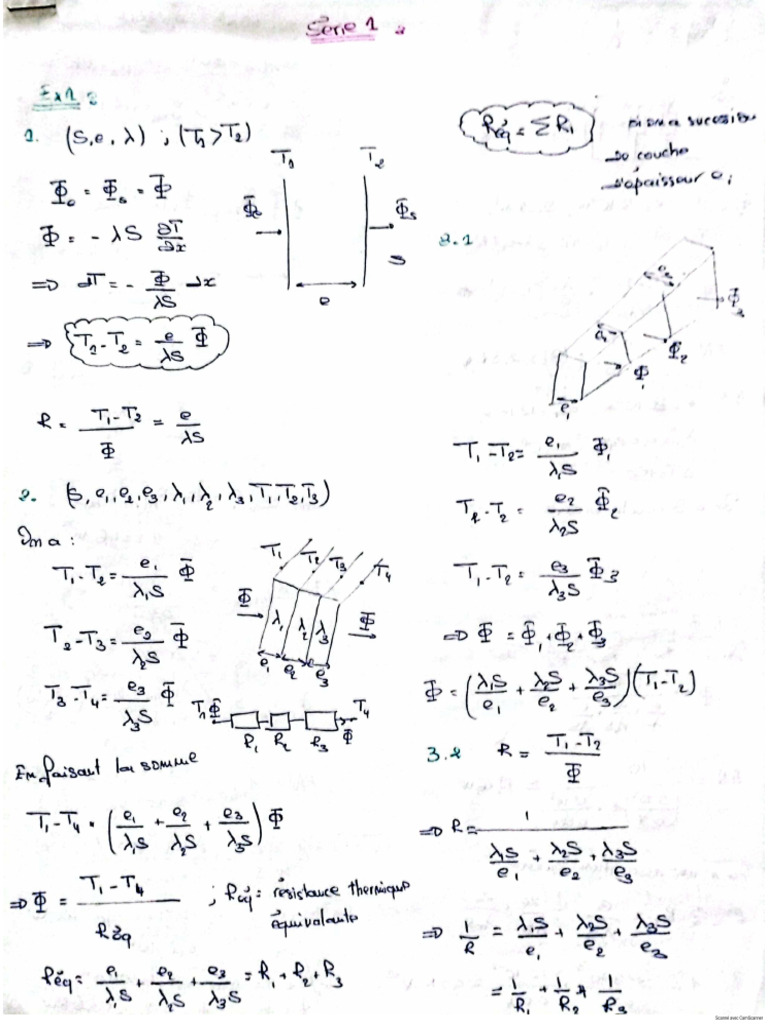 Série 1
Ex1:
1. (S, e, λ) ; (T1 > T2)
Φe = Φs = Φ
Φ = - λ S ∂T/∂x
⇒ dT = - Φ/λS dx
⇒ T1 - T2 = e/λS Φ
T1 T2
Φe Φs
S
e
R = T1-T2/Φ = e/λS
2. (S, e1, e2, e3, λ1, λ2, λ3, T1, T2, T3)
On a :
T1 - T2 = e1/λ1S Φ
T2 - T3 = e2/λ2S Φ
T3 - T4 = e3/λ3S Φ
T1 T2 T3 T4
Φ λ1 λ2 λ3 Φ
e1 e2 e3
T1 Φ T4
R1 R2 R3 Φ
En faisant la somme
T1 - T4 = (e1/λ1S + e2/λ2S + e3/λ3S) Φ
⇒ Φ = T1 - T4/Réq ; Réq = résistance thermique
équivalante
Réq = e1/λ1S + e2/λ2S + e3/λ3S = R1 + R2 + R3
Réq = Σ Ri
de couche
d'épaisseur ei
2.1
e1 Φ1 Φ2
T1 - T2 = e1/λ1S Φ1
T1 - T2 = e2/λ2S Φ2
T1 - T2 = e3/λ3S Φ3
⇒ Φ = Φ1 + Φ2 + Φ3
Φ = (λ1S/e1 + λ2S/e2 + λ3S/e3)(T1 - T2)
3.2 R = T1 - T2/Φ
⇒ R = 1/(λ1S/e1 + λ2S/e2 + λ3S/e3)
⇒ 1/R = λ1S/e1 + λ2S/e2 + λ3S/e3
= 1/R1 + 1/R2 + 1/R3
Scanné avec CamScanner